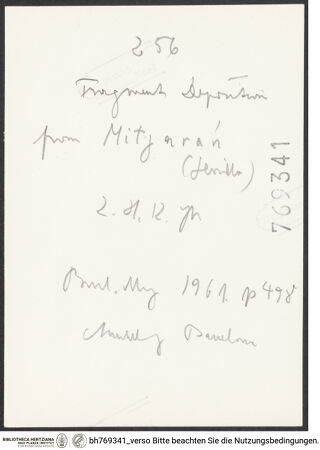 256
Fragment Deposition
from Mitjarán
(Sevilla)
2. H. 12. Jh
Burl. Mag 1961. p 498
Barcelona
769341
BIBLIOTHECA HERTZIANA
MAX-PLANCK-INSTITUT
FÜR KUNSTGESCHICHTE
bh769341_verso Bitte beachten Sie die Nutzungsbedingungen.